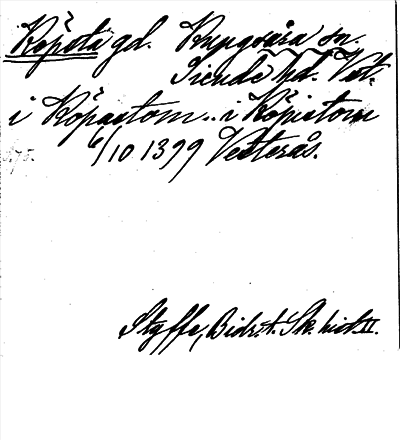 Köpsta gd. Knngsåra sn.
Siende hd. Vstm.
i Köpastom .. i Köpistom
6/10 1399 Vesterås.
Styffe, Bidr. t. Sk. hist. II.